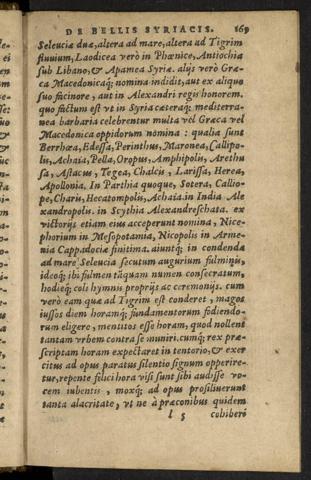 DE BELLIS SYRIACIS. 169
Seleuciæ duæ, altera ad mare, altera ad Tigrim
fluuium, Laodicea verò in Phœnice, Antiochia
sub Libano, & Apamea Syriæ. alijs verò Græ-
ca Macedonicaq; nomina indidit, aut ex aliquo
suo facinore, aut in Alexandri regis honorem.
quo factum est vt in Syria cæteraq; mediterra-
nea barbaria celebrentur multa vel Græca vel
Macedonica oppidorum nomina: qualia sunt
Berrhœa, Edessa, Perinthus, Maronea, Callipo-
lis, Achaia, Pella, Oropus, Amphipolis, Arethu
sa, Astacus, Tegea, Chalcis, Larissa, Herea,
Apollonia. In Parthia quoque, Sotera, Callio-
pe, Charis, Hecatompolis, Achaia. in India Ale
xandropolis. in Scythia Alexandreschata. ex
victorijs etiam eius acceperunt nomina, Nice-
phorium in Mesopotamia, Nicopolis in Arme-
nia Cappadociæ finitima. aiuntq; in condenda
ad mare Seleucia secutum augurium fulminis,
ideoq; ibi fulmen tāquam numen consecratum,
hodieq; coli hymnis proprijs ac ceremonijs. cum
verò eam quæ ad Tigrim est conderet, magos
iussos diem horamq; fundamentorum fodiendo-
rum eligere, mentitos esse horam, quod nollent
tantam vrbem contra se muniri. cumq; rex præ-
scriptam horam expectaret in tentorio, & exer
citus ad opus paratus silentio signum opperire-
tur, repente felici hora visi sunt sibi audisse vo-
cem iubentis, moxq; ad opus prosiliuerunt
tanta alacritate, vt ne à præconibus quidem
l 5 cohiberi